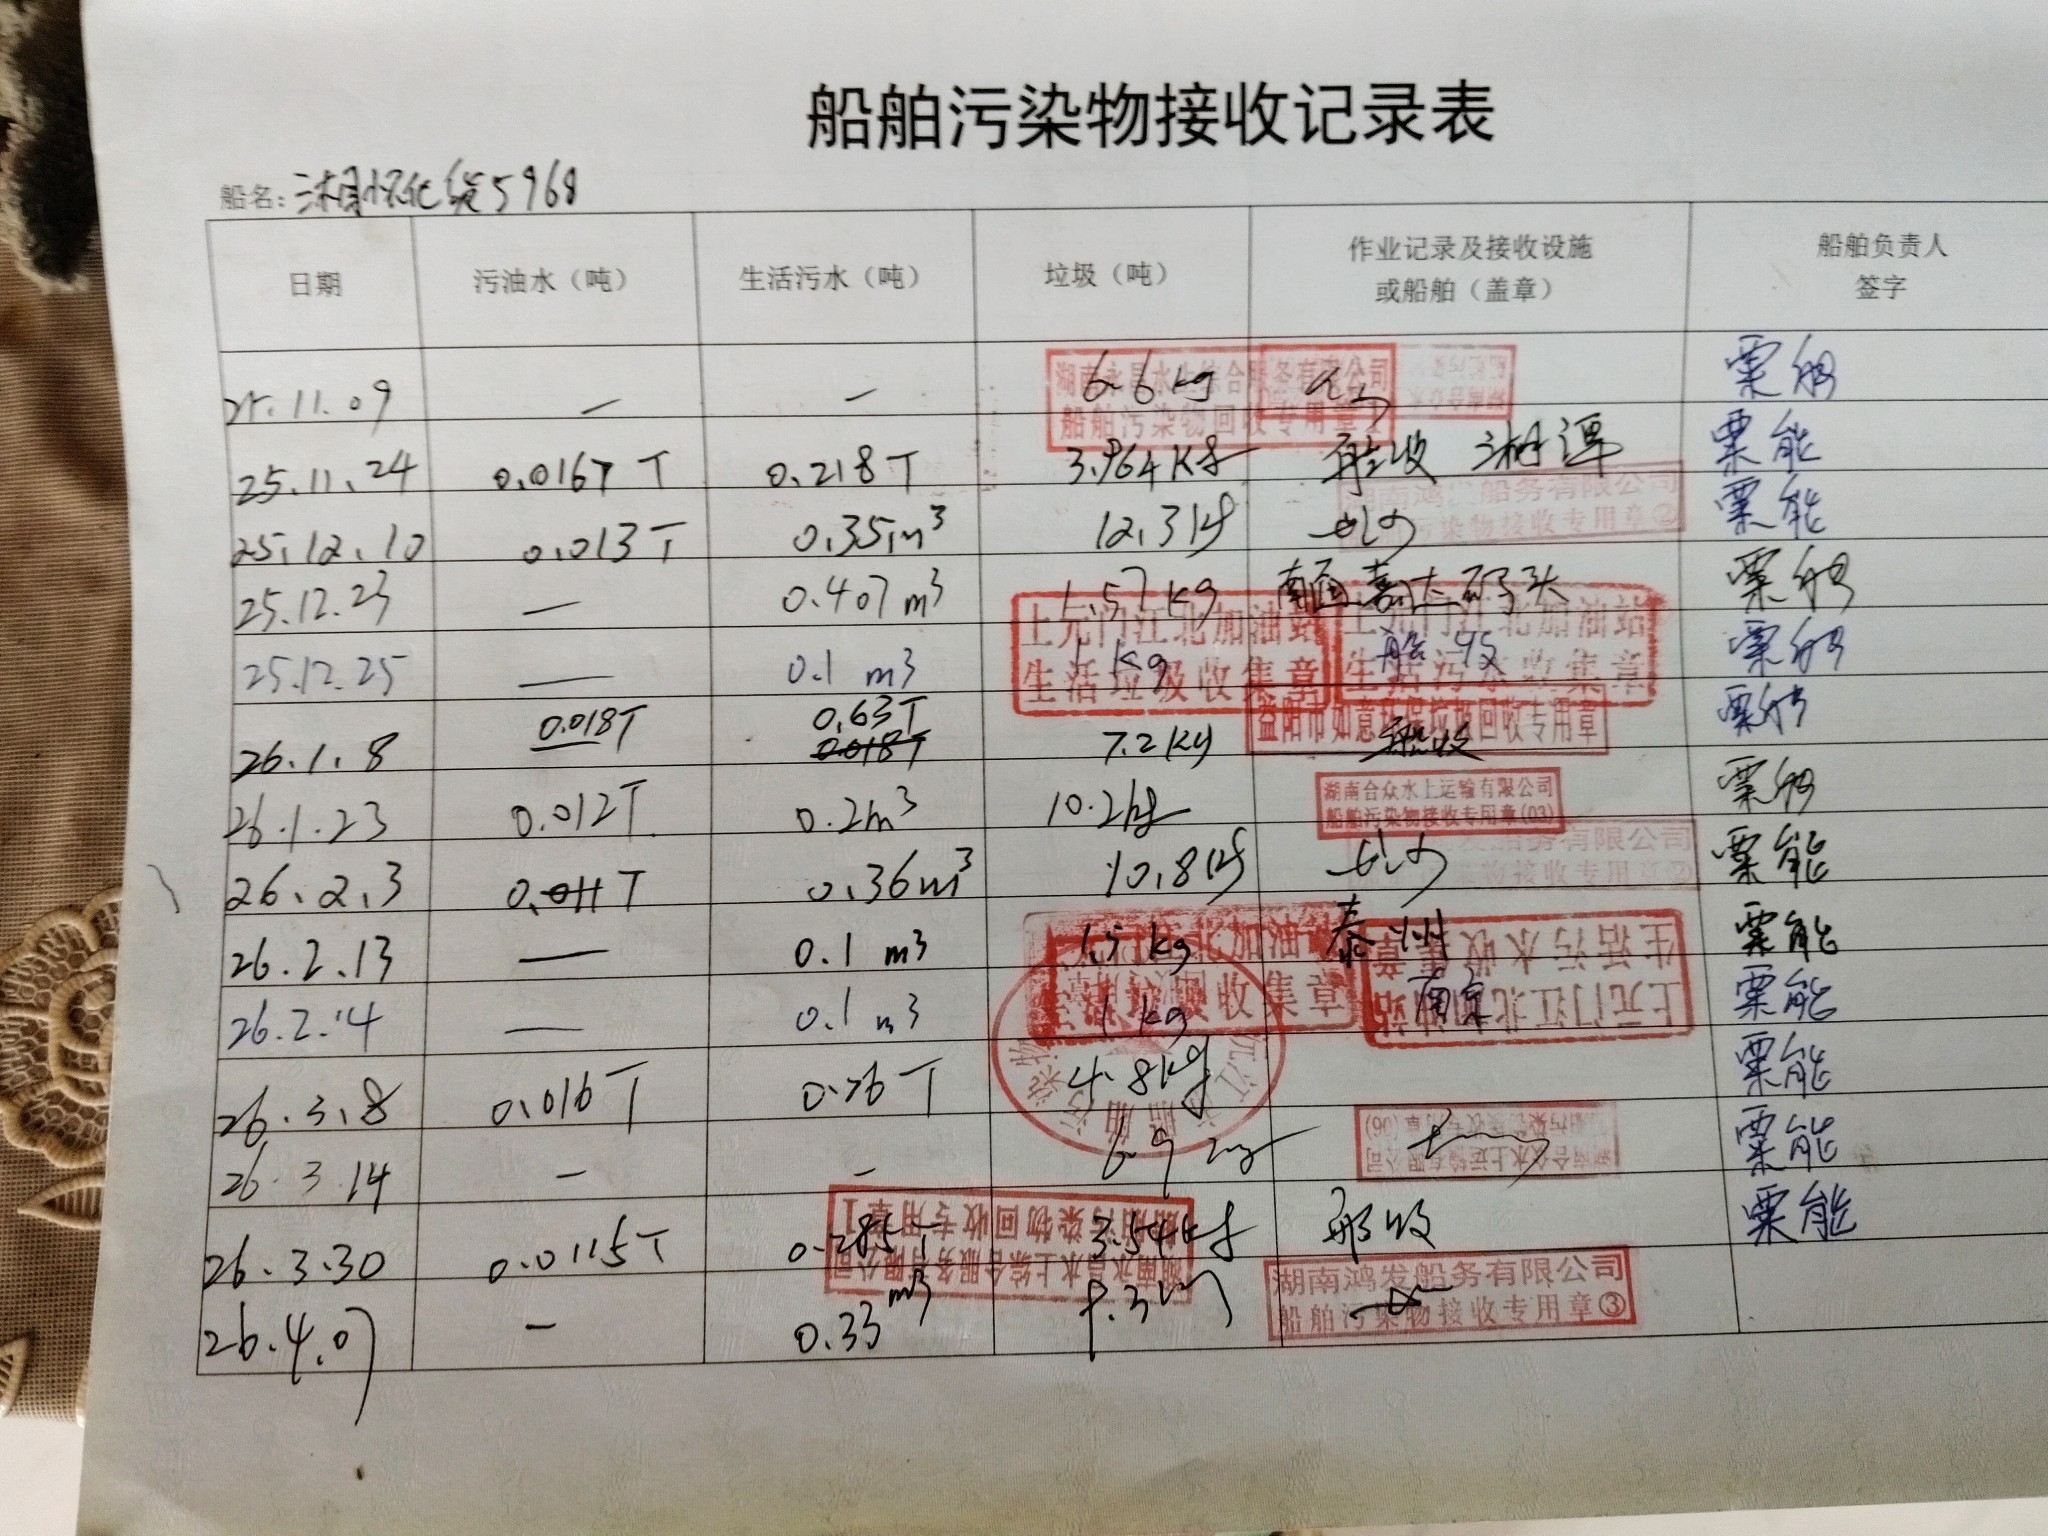 船舶污染物接收记录表
船名: 湘怀化货5968
日期 污油水（吨） 生活污水（吨） 垃圾（吨） 作业记录及接收设施或船舶（盖章） 船舶负责人签字
25.11.09 — — 6.6kg 湖南永昌水上综合服务有限公司 船舶污染物回收专用章1
25.11.24 0.0167T 0.218T 3.964Kg 船收 粟能
25.12.10 0.013T 0.35m³ 12.3kg 湖南鸿发船务有限公司 污染物接收专用章② 粟能
25.12.23 — 0.407m³ 1.57kg 码头
25.12.25 — 0.1m³ 1kg 船收 上元门江北加油站 生活垃圾收集章 上元门江北加油站 生活污水收集章
26.1.8 0.018T 0.63T 0.018T 7.2kg 船收 益阳市如意环保垃圾回收专用章
26.1.23 0.012T 0.2m³ 10.2kg 湖南合众水上运输有限公司 船舶污染物接收专用章(03)
26.2.3 0.011T 0.36m³ 10.8kg 发船务有限公司 染物接收专用章② 粟能
26.2.13 — 0.1m³ 1.5kg 泰州 粟能
26.2.14 — 0.1m³ 1kg 南京 上元门江北加油站 生活污水收集章 粟能
26.3.8 0.016T 0.26T 4.8kg 沅江 船舶污染物 粟能
26.3.14 — — 6.9 湖南合众水上运输有限公司 (06) 粟能
26.3.30 0.0115T 0.285T 3.54kg 船收 湖南永昌水上综合服务有限公司 船舶污染物回收专用章1 粟能
26.4.07 — 0.33m³ 湖南鸿发船务有限公司 船舶污染物接收专用章③